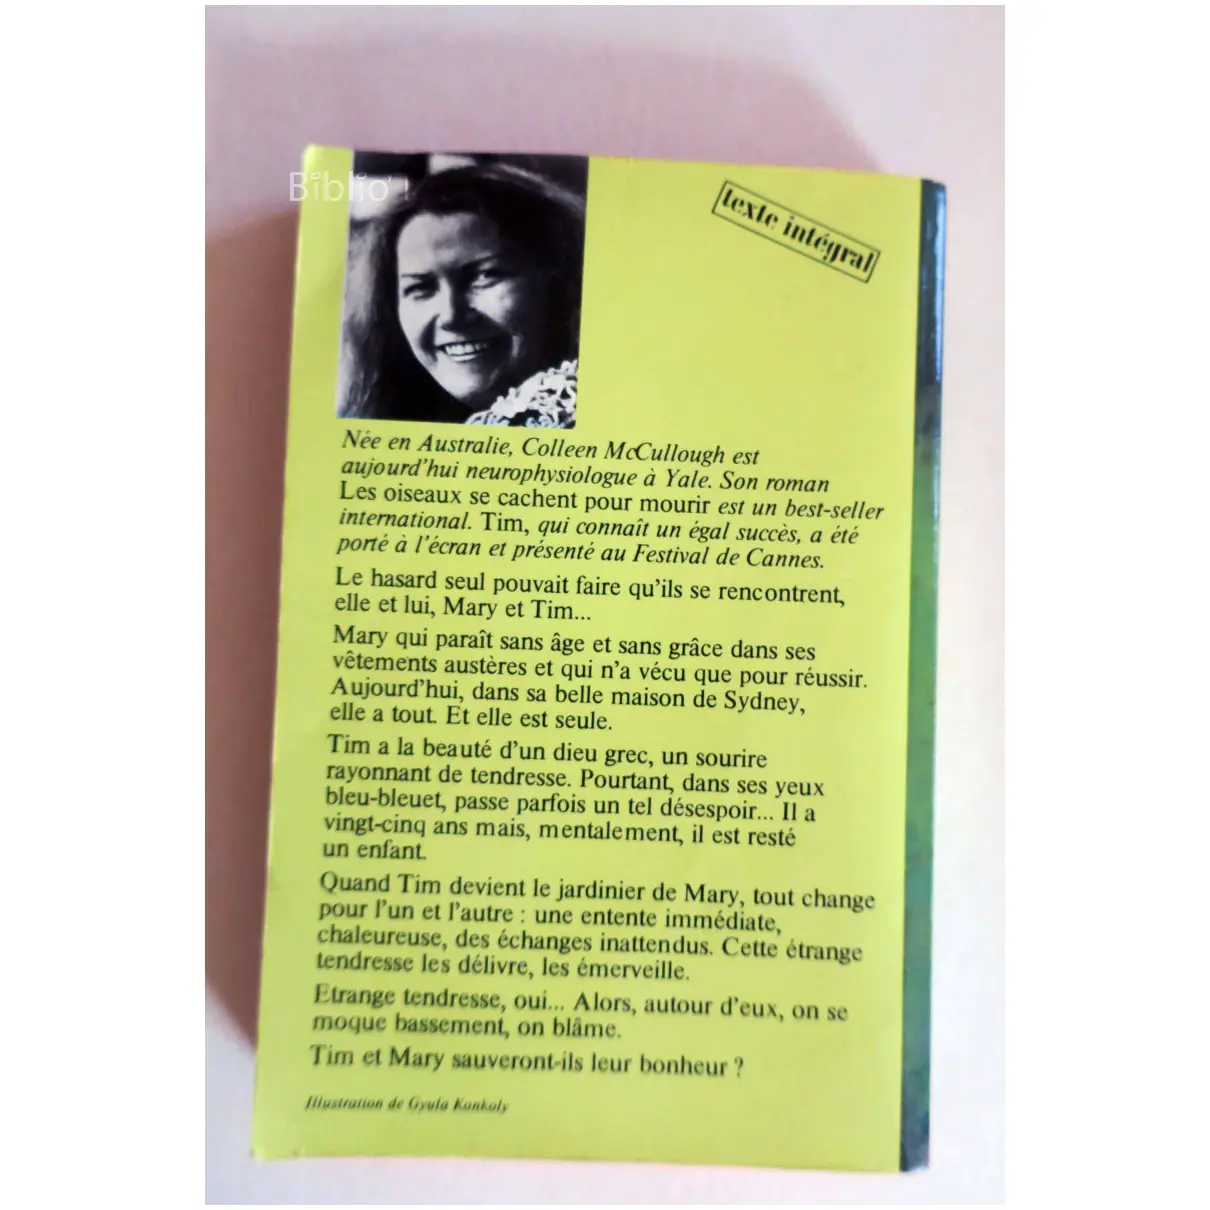 Biblio'
texte intégral
Née en Australie, Colleen McCullough est
aujourd'hui neurophysiologue à Yale. Son roman
Les oiseaux se cachent pour mourir est un best-seller
international. Tim, qui connaît un égal succès, a été
porté à l'écran et présenté au Festival de Cannes.
Le hasard seul pouvait faire qu'ils se rencontrent,
elle et lui, Mary et Tim...
Mary qui paraît sans âge et sans grâce dans ses
vêtements austères et qui n'a vécu que pour réussir.
Aujourd'hui, dans sa belle maison de Sydney,
elle a tout. Et elle est seule.
Tim a la beauté d'un dieu grec, un sourire
rayonnant de tendresse. Pourtant, dans ses yeux
bleu-bleuet, passe parfois un tel désespoir... Il a
vingt-cinq ans mais, mentalement, il est resté
un enfant.
Quand Tim devient le jardinier de Mary, tout change
pour l'un et l'autre : une entente immédiate,
chaleureuse, des échanges inattendus. Cette étrange
tendresse les délivre, les émerveille.
Etrange tendresse, oui... Alors, autour d'eux, on se
moque bassement, on blâme.
Tim et Mary sauveront-ils leur bonheur ?
Illustration de Gyula Konkoly